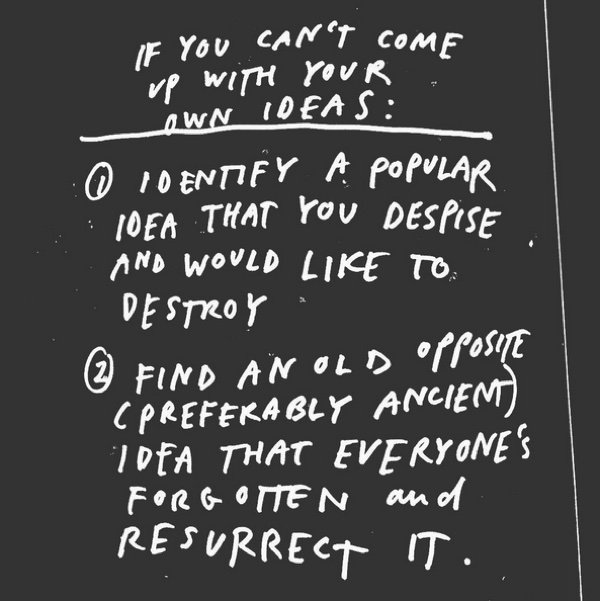 IF YOU CAN'T COME
UP WITH YOUR
OWN IDEAS:
① IDENTIFY A POPULAR
IDEA THAT YOU DESPISE
AND WOULD LIKE TO
DESTROY
② FIND AN OLD OPPOSITE
(PREFERABLY ANCIENT)
IDEA THAT EVERYONE'S
FORGOTTEN and
RESURRECT IT.